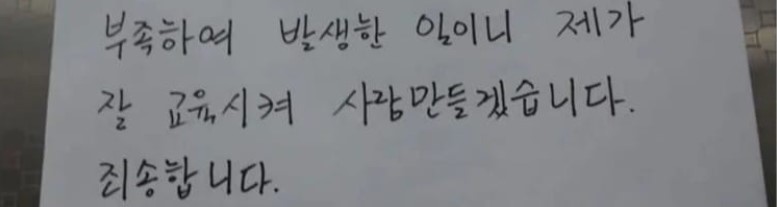 부족하여 발생한 일이니 제가
잘 교육시켜 사람만들겠습니다.
죄송합니다.